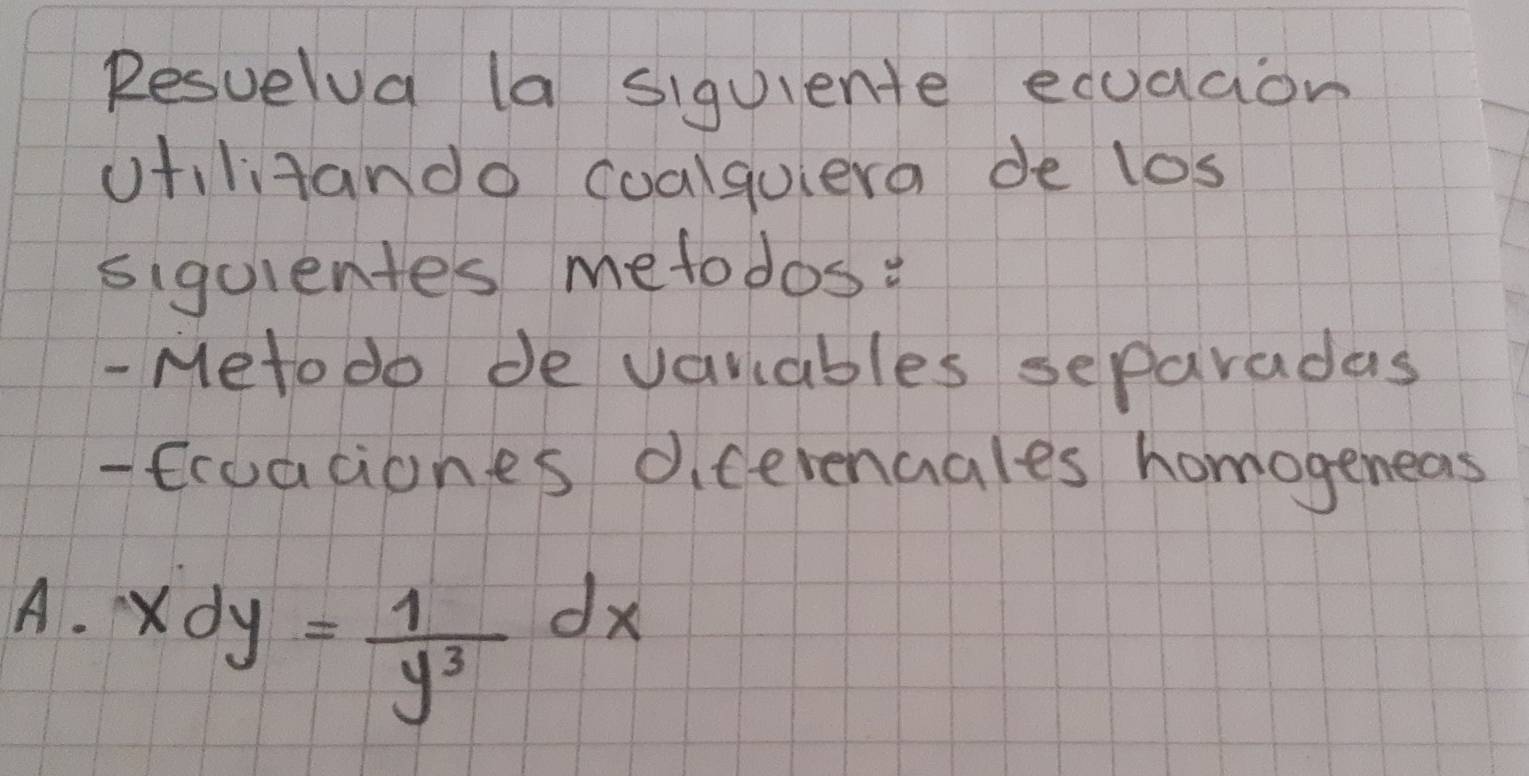 Resuelva la siguiente ecuación
utilizando cualquiera de los
siguientes metodos:
- Metodo de variables separadas
- Ecuaciones diferenciales homogeneas
A. x dy = 1/y³ dx